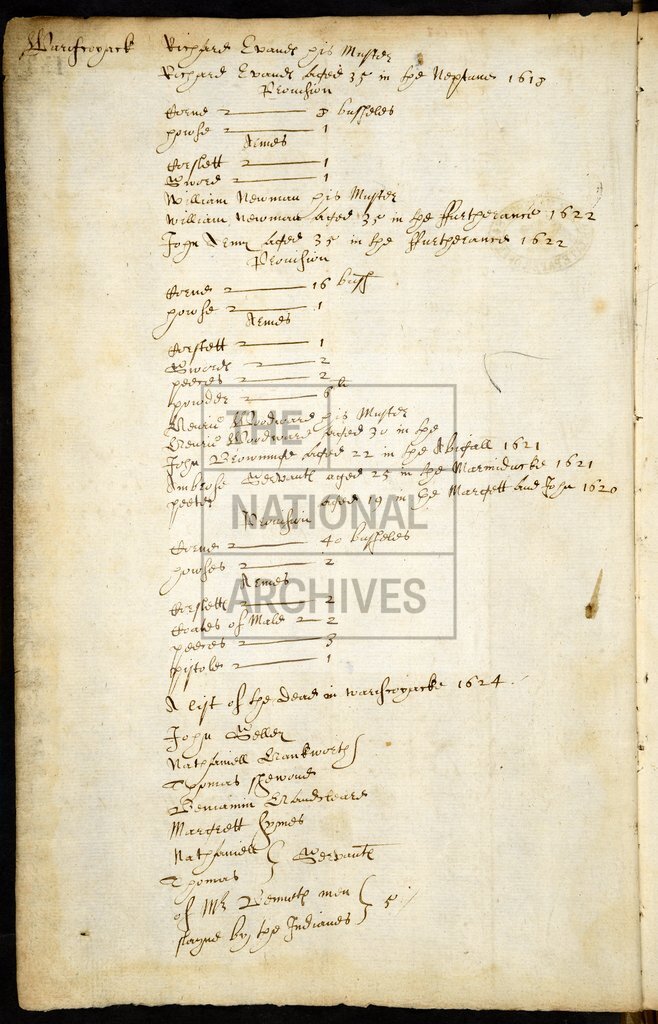 Wariscoyack
Richard Evands his Muster
Richard Evands aged 35 in the Neptune 1618
Provision
Corne 3 busheles
howse 1
Armes
Corslett 1
Sword 1
William Newman his Muster
William Newman aged 35 in the Furtherance 1622
John Army aged 35 in the Furtherance 1622
Provision
Corne 16 bush
howse 1
Armes
Corslett 1
Swords 2
peeces 2
powder 6 li
Henrie Woodward his Muster
Henrie Woodward aged 30 in the
John Browninge aged 22 in the Abigall 1621
Ambrose Servant aged 25 in the Marmiducke 1621
peeter aged 19 in the Margett and John 1620
Provision
Corne 40 busheles
howses 2
Armes
Corsletts 2
Coates of Male 2
peeces 3
pistole 1
A list of the Dead in Wariscoyacke 1624
John Selley
Nathaniell Hankworth
Thomas Shewood
Beniamin Handcleare
Margrett Symes
Nathaniell
Thomas
Servants
of Mr Bennetts men
slayne by the Indianes
5
THE
NATIONAL
ARCHIVES